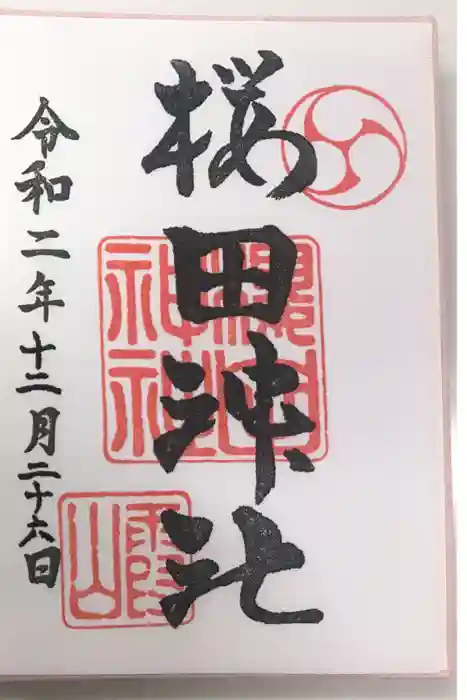 桜田神社
令和二年十二月二十六日
櫻田神社
霞山